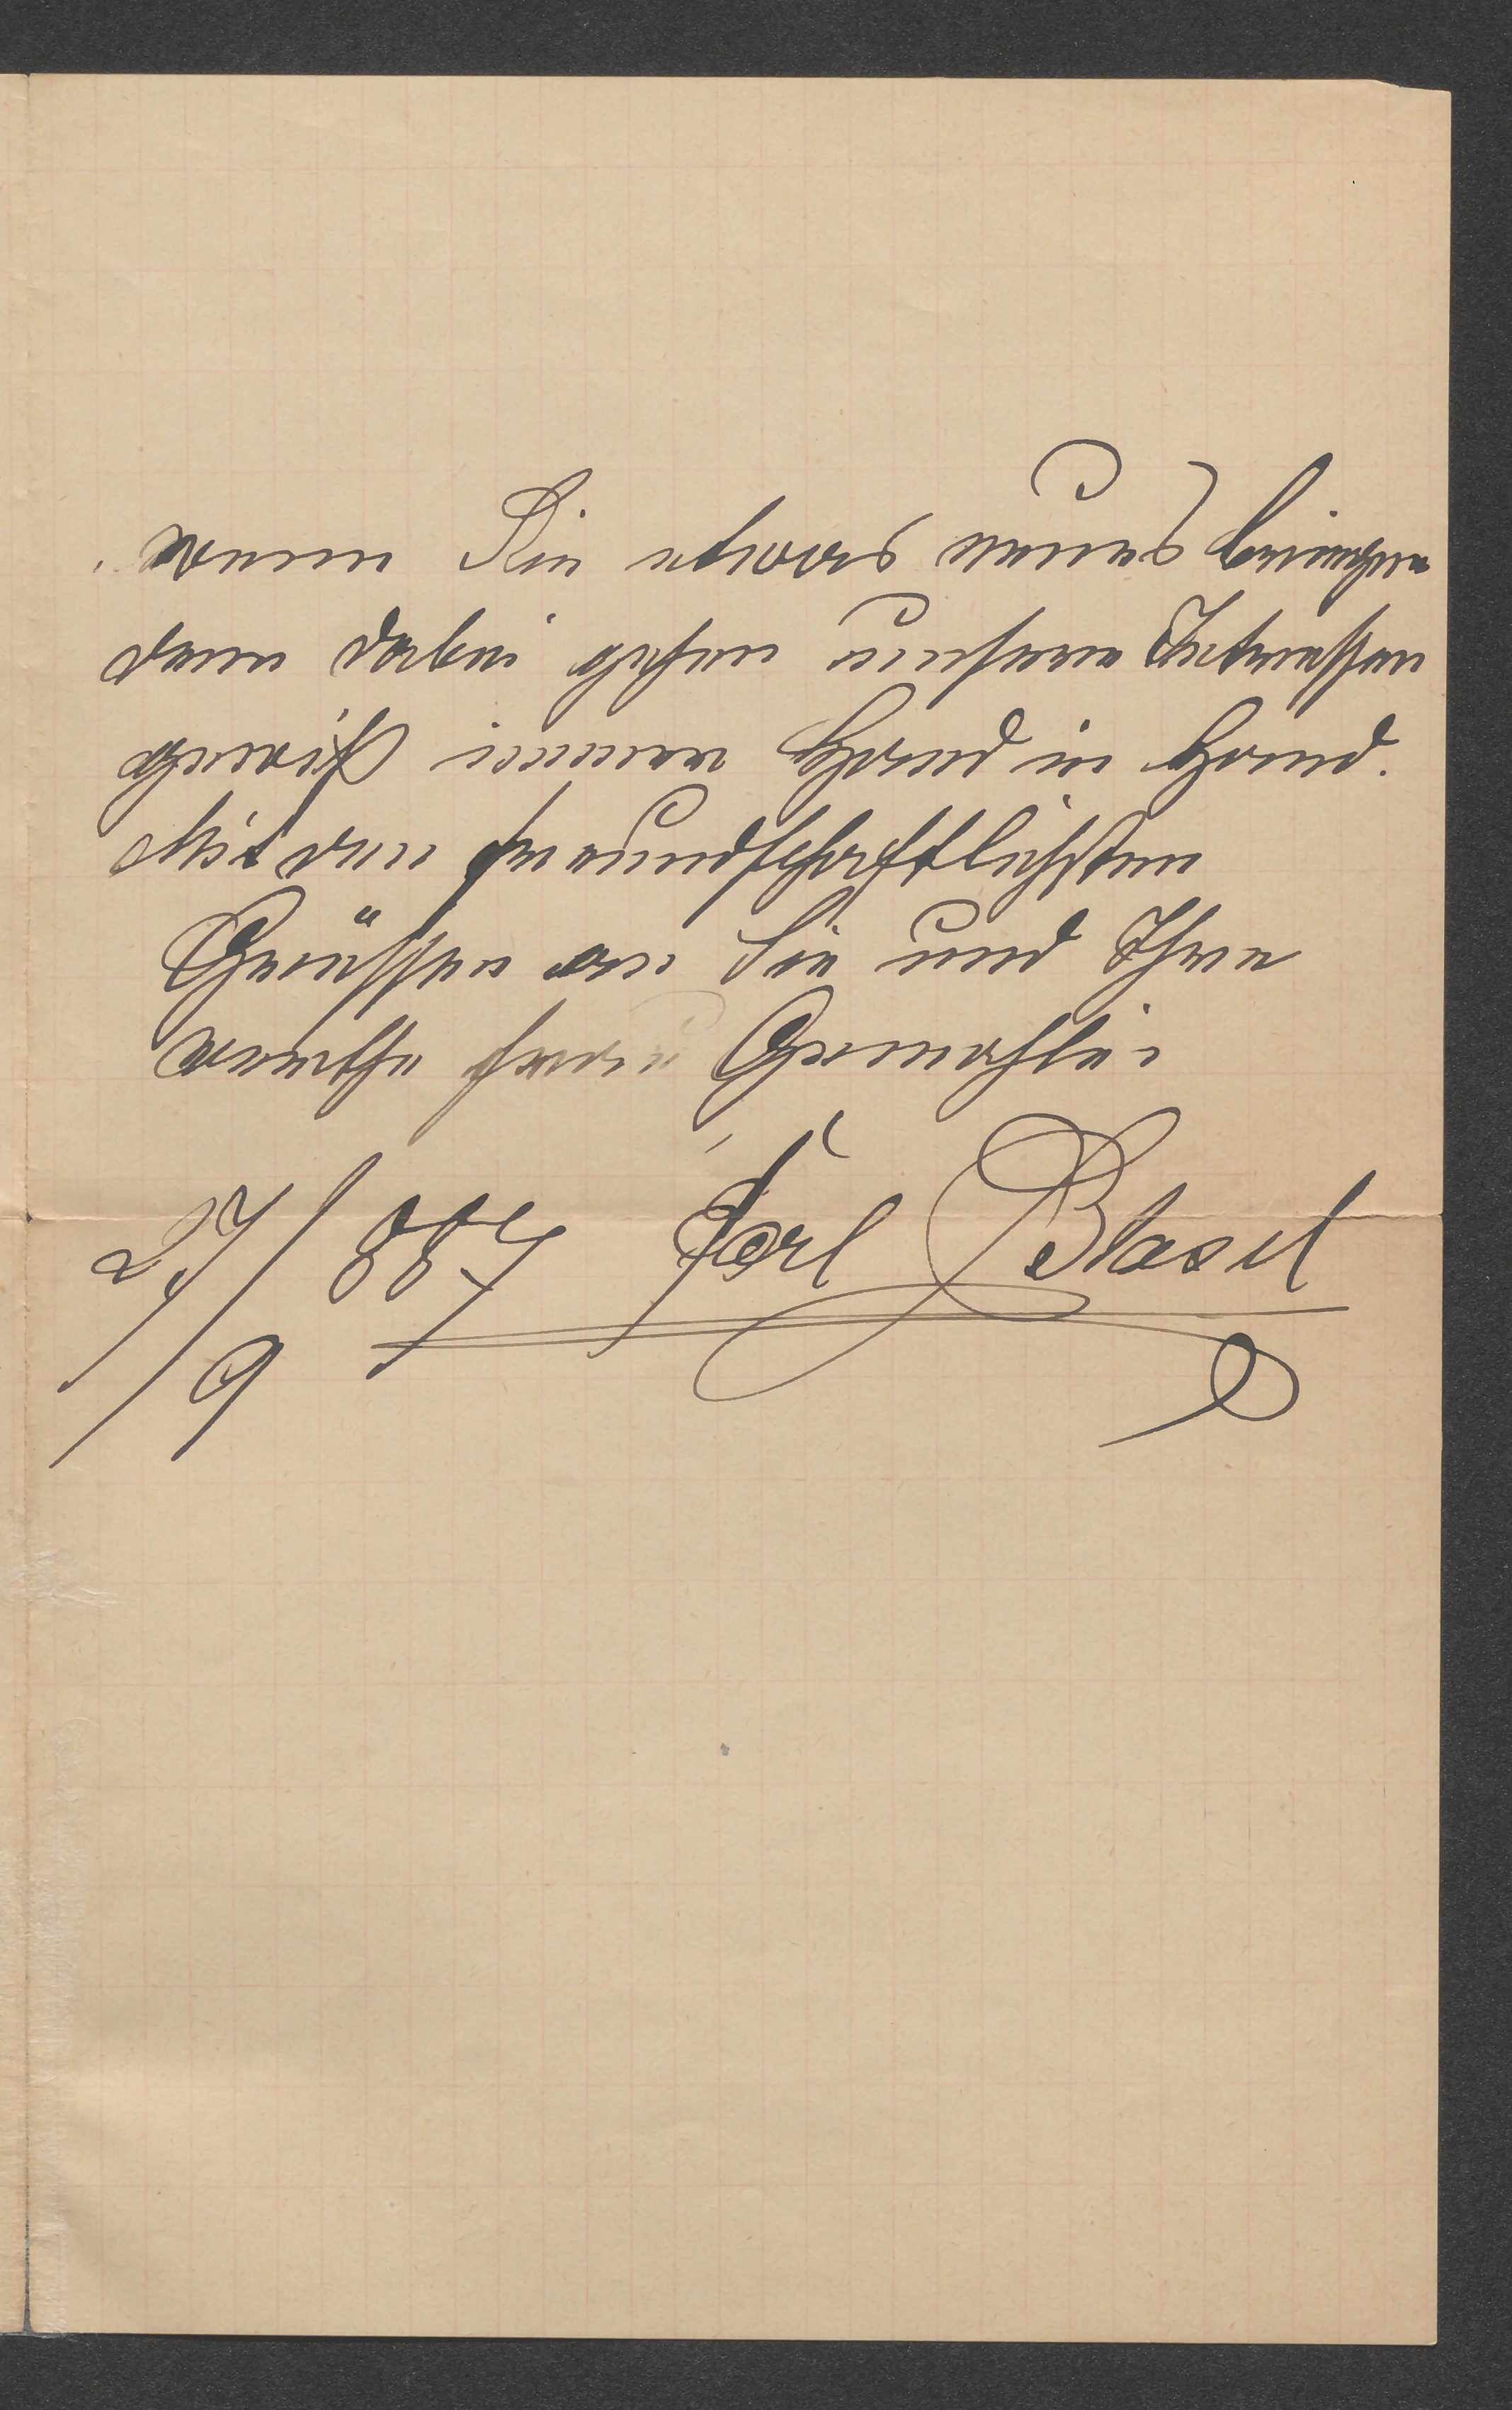 wenn Sie etwas neues bringen
denn dabei gehen unsere Interessen
gewiß immer Hand in Hand.
Mit den freundschaftlichsten
Grüssen an Sie und Ihre
werthe Frau Gemahlin
27/9 887 Karl Blasel